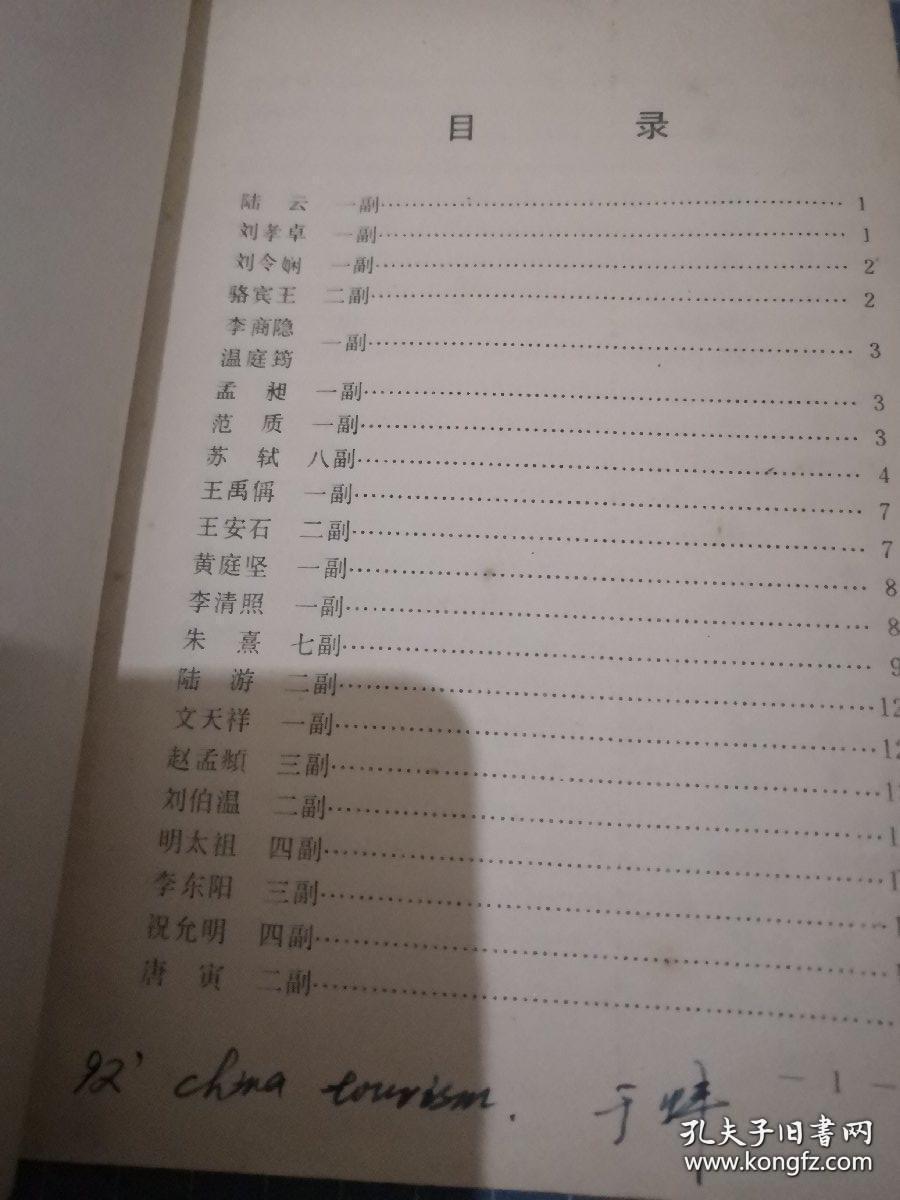 目 录
陆 云 一副 1
刘孝卓 一副 1
刘令娴 一副 2
骆宾王 二副 2
李商隐
温庭筠 一副 3
孟 昶 一副 3
范 质 一副 3
苏 轼 八副 4
王禹偁 一副 7
王安石 二副 7
黄庭坚 一副 8
李清照 一副 8
朱 熹 七副 9
陆 游 二副 12
文天祥 一副
赵孟頫 三副
刘伯温 二副
明太祖 四副
李东阳 三副
祝允明 四副
唐 寅 二副
— 1 —
92' china tourism.
孔夫子旧书网
www.kongfz.com